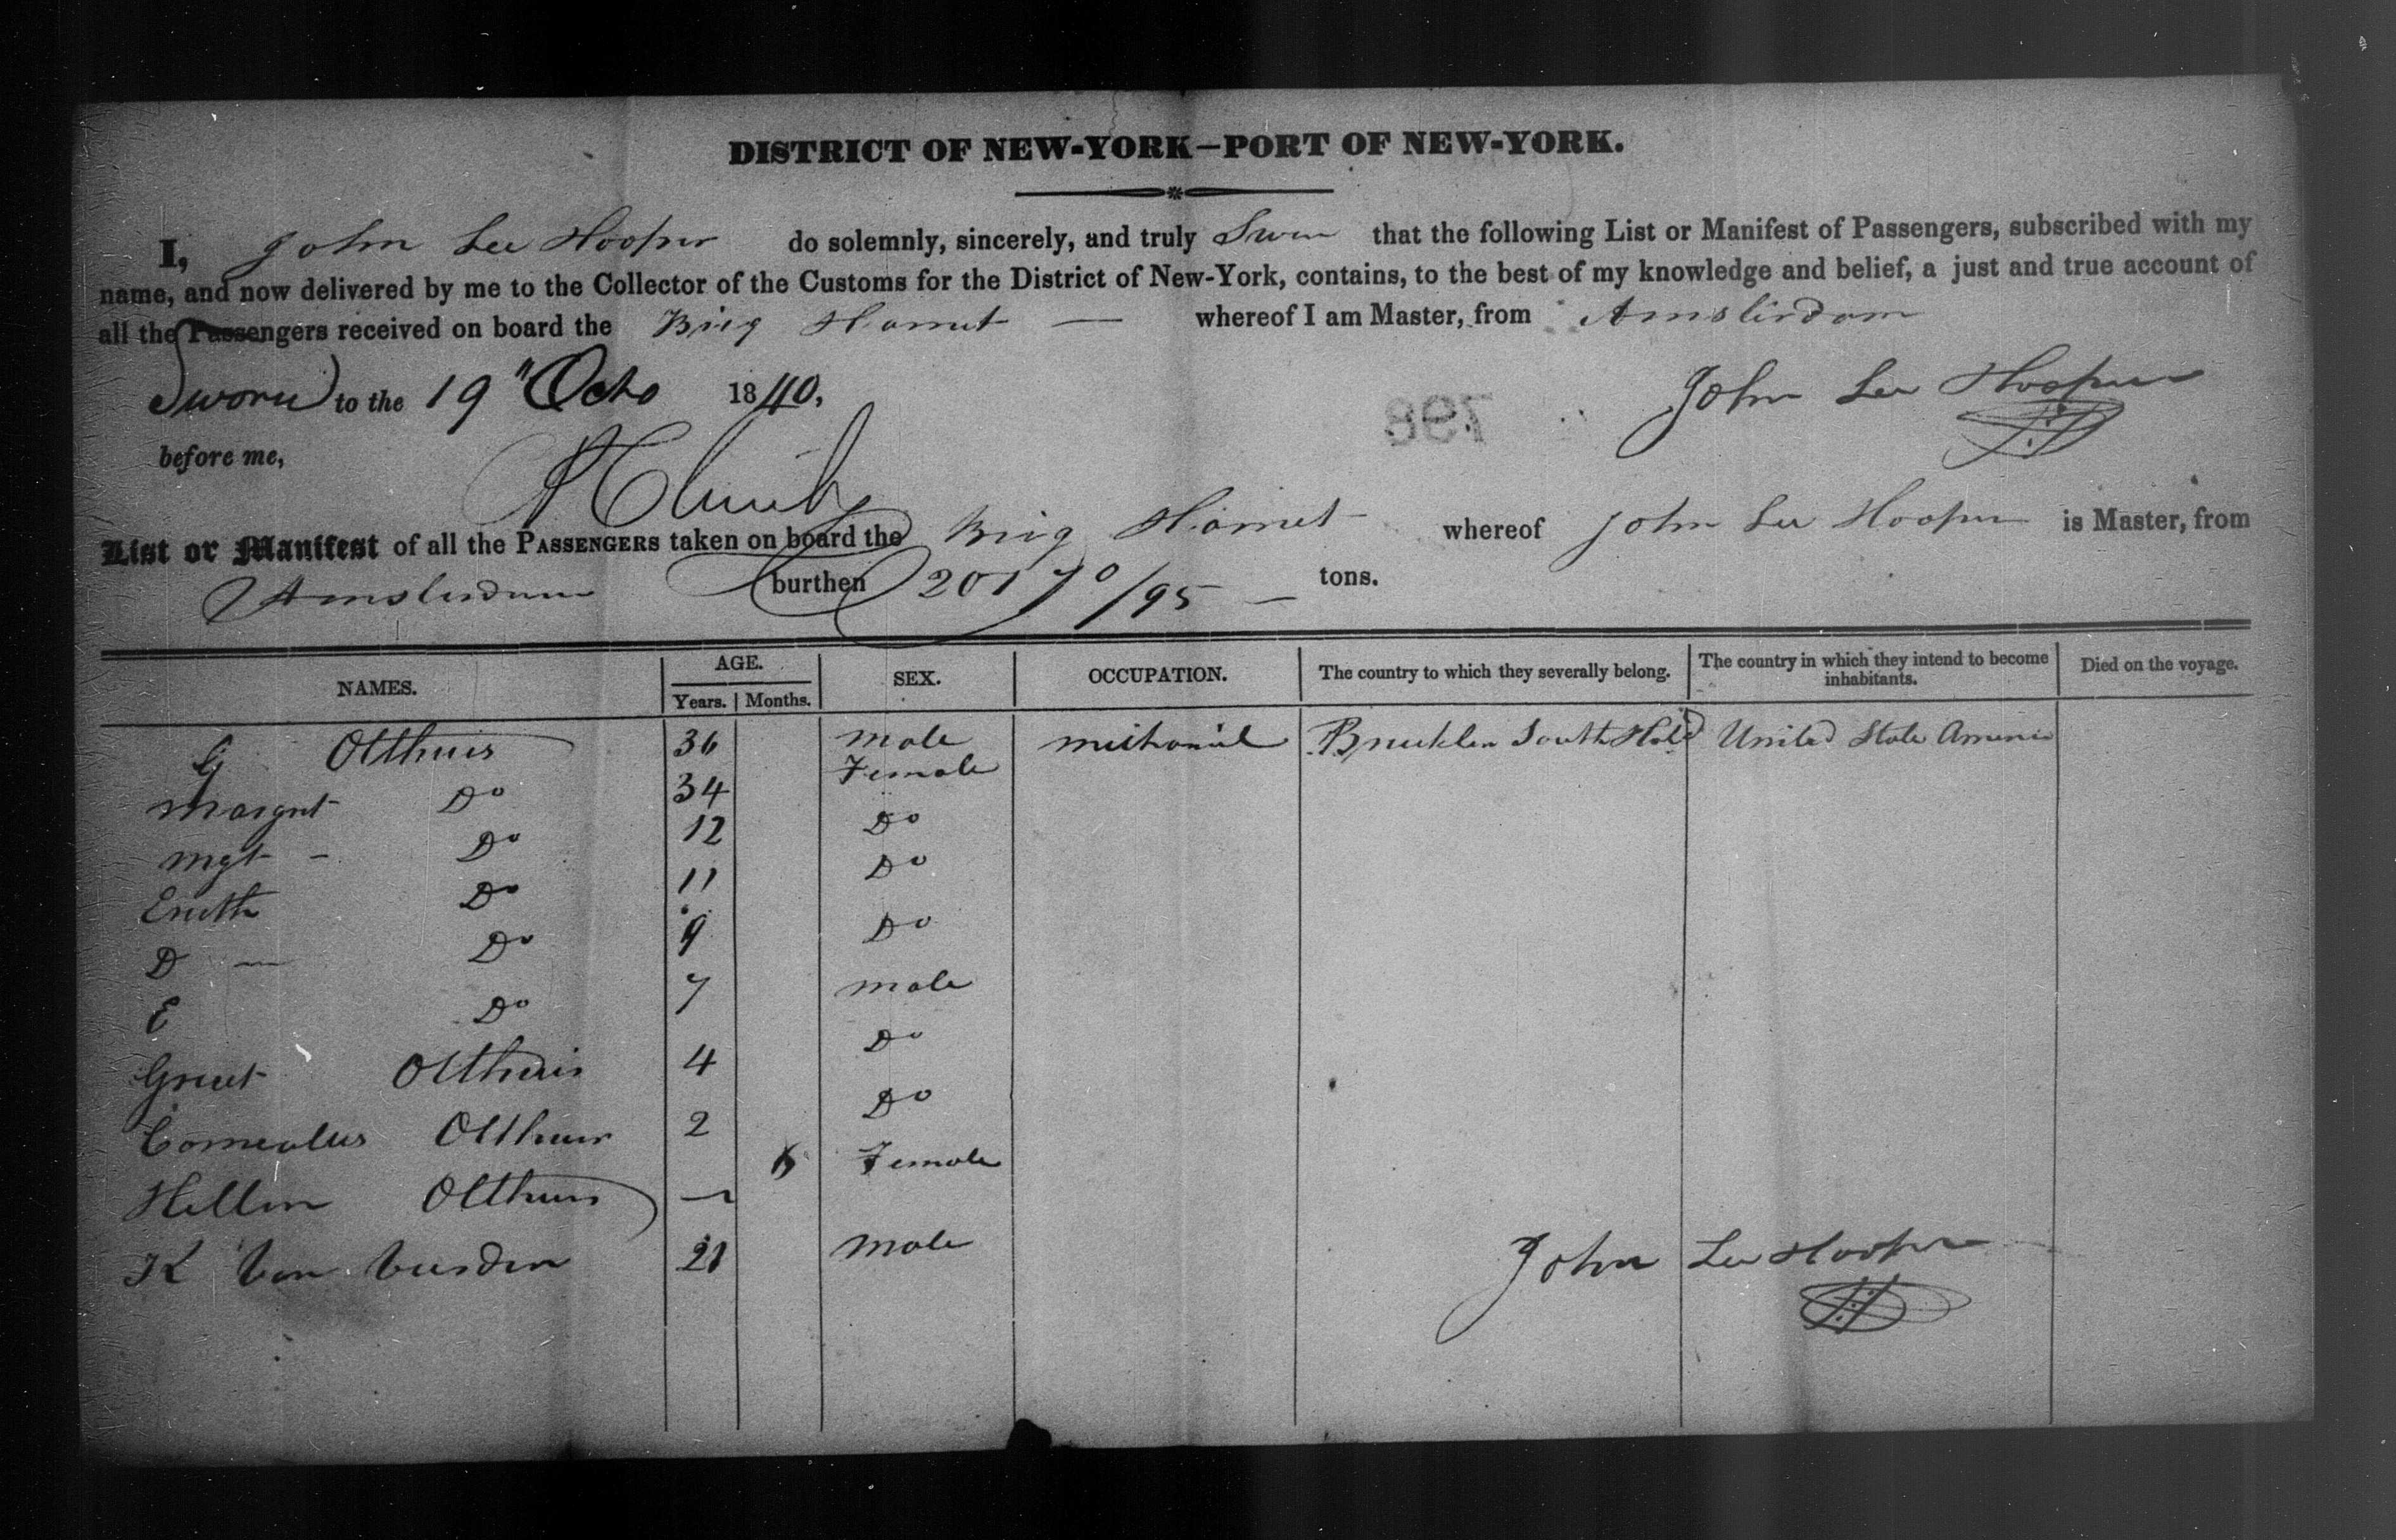 DISTRICT OF NEW-YORK—PORT OF NEW-YORK.
I, John Lee Hooper do solemnly, sincerely, and truly Swear that the following List or Manifest of Passengers, subscribed with my
name, and now delivered by me to the Collector of the Customs for the District of New-York, contains, to the best of my knowledge and belief, a just and true account of
all the Passengers received on board the Brig whereof I am Master, from Amsterdam
Sworn to the 19" Octo 1840,
John Lee Hooper
798
before me,
List or Manifest of all the PASSENGERS taken on board the Brig whereof John Lee Hooper is Master, from
Amsterdam burthen 201 70/95 — tons.
NAMES. AGE. SEX. OCCUPATION. The country to which they severally belong. The country in which they intend to become inhabitants. Died on the voyage.
Years. Months.
G Olthuis 36 male South Hold United State America
Margret Do 34 Female
Mgt - Do 12 Do
Do 11 Do
D — Do 9 Do
E Do 7 male
Olthuis 4 Do
Cornealus Olthuis 2 Do
Hellen Olthuis — 6 Female
K Van 21 male
John Lee Hooper